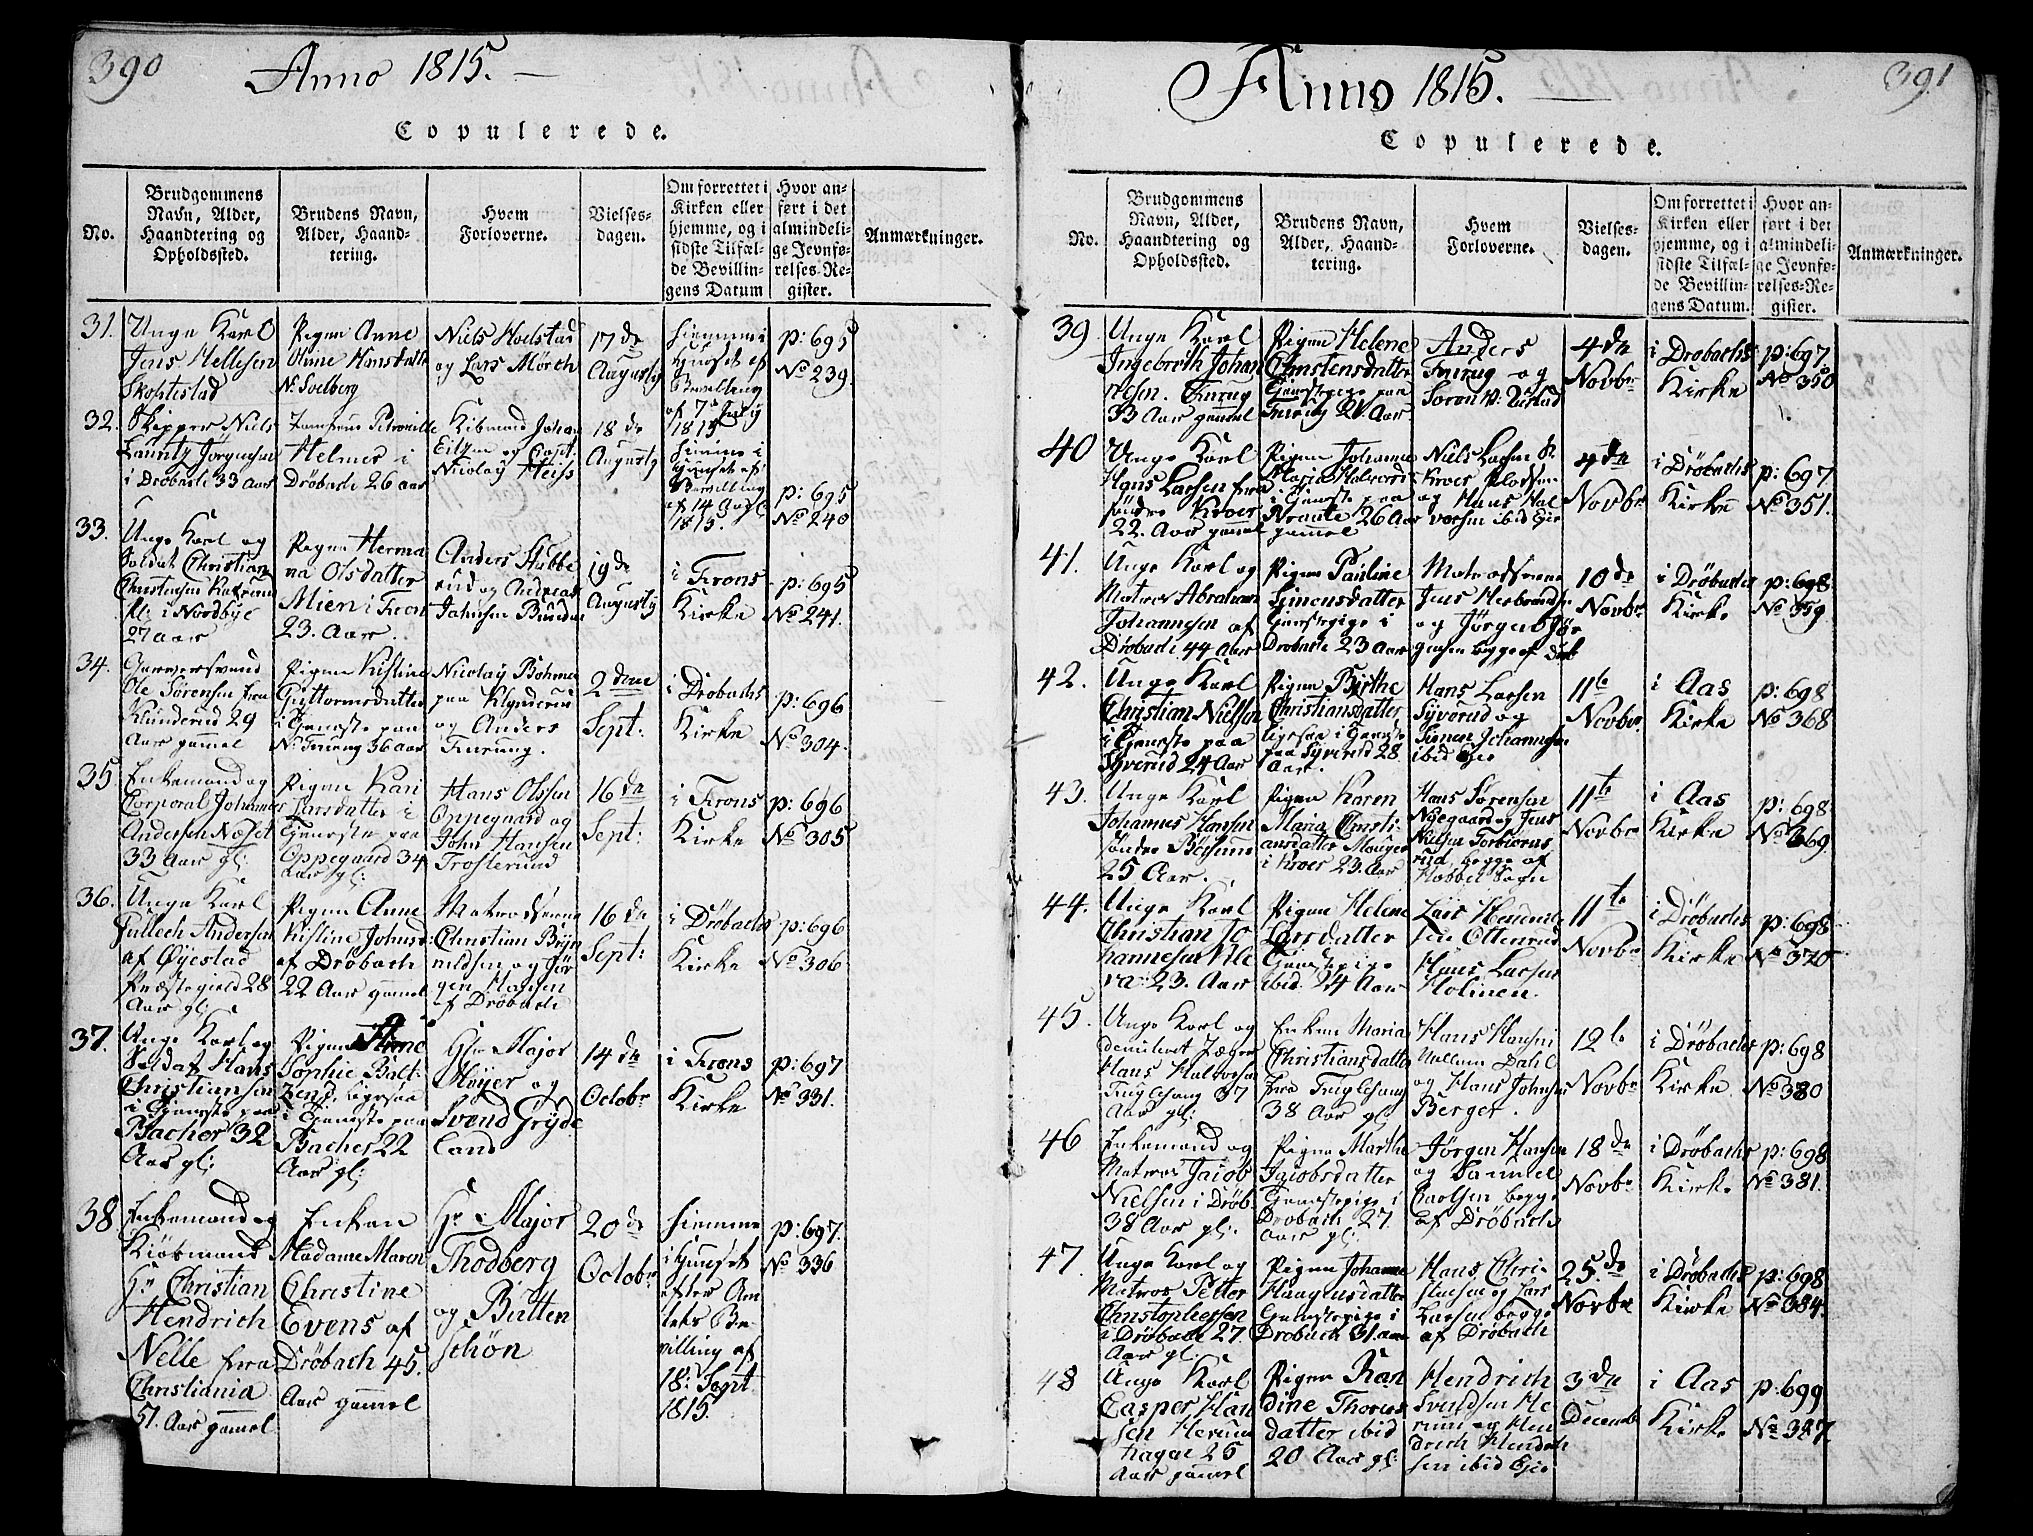 390
Anno 1815.
Copulerede.
No.
Brudgommens Navn, Alder, Haandtering og Opholdssted.
Brudens Navn, Alder, Haandtering.
Hvem Forloverne.
Vielsesdagen.
Om forrettet i Kirken eller hjemme, og i sidste Tilfælde Bevillingens Datum
Hvor anført i det almindelige Jevnførelses-Register.
Anmærkninger.
31.
Unge Karl
Jens Hellesen
Skoptestad
Pigen Anne
Oline Hansdatte
Niels Hoelstad
og Lars Mörch
17 de
Augusty
af 7 July
1815
p: 695
No 239.
32.
Skipper Niels
Lauritz Jörgensen
i Dröbach 33 Aar
Helmer i
Dröbach 26 aar
Johan
Eilzen og Capt:
Nicolay Heiss
18 de
Augusty
af 14 Aug:
1815.
p: 695
No 240
33.
Unge Karl og
Soldat Christian
i Nordbye
27 aar
Pigen Herma
na Olsdatter
Mien i Fron
23. Aar.
Anders Stubbe
rud og Andreas
19 de
Augusty
i Frons
Kirke
p: 695
No 241.
34.
Ole Sörensen fra
29
Aar gamel
Pigen Kistine
Guttormsdatter
i Tjeneste paa
36 aar
Nicolay Bohmer
paa
og Anders
2 dene
Sept:
i Dröbachs
Kirke
p: 696
No 304.
35
Enkemand og
Corporal Johannes
Andersen Næset
33 Aar gl:
Pigen Kari
Larsdatter i
Tjeneste paa
Oppegaard 34
Aar gl:
Hans Olsen
Oppegaard og
John Hansen
Trosterud
16 de
Sept:
i Frons
Kirke
p: 696
No 305
36.
Unge Karl
Gullech Andersen
af Öyestad
Præstegield 28
Aar gl:
Pigen Anne
Kistine Johns
af Dröbach
22 Aar gamel
Matroserne
Christian Bryn
nildsen og Jör
gen Hansen
af Dröbach
16 de
Sept:
i Dröbachs
Kirke
p: 696
No 306
37.
Unge Karl og
Soldat Hans
Christiansen
i Tjeneste paa
Bacher 32
Aar gl:
Pigen Anne
Sophie Balt
zend,
i Tjeneste paa
Bacher 22
Aar gl:
Hr Major
Höyer og
Svend Gryde
land
14 de
Octobr
i Frons
Kirke
p: 697
No 331.
38
Enkemand og
Kiöbmand
Hr Christian
Hendrich
Nelle fra
Christiania
51. Aar gamel
Enken
Madame Maren
Christine
Evens af
Dröbach 45.
Aar gamel
Hr Major
Thodberg
og Bütten
schön
20 de
Octobr
hiemme
i Huuset
efter Am
tets Be
villing af
18: Sept.
1815.
p: 697.
No 336
391
Anno 1815.
Copulerede.
No.
Brudgommens Navn, Alder, Haandtering og Opholdssted.
Brudens Navn, Alder, Haandtering.
Hvem Forloverne.
Vielsesdagen.
Om forrettet i Kirken eller hjemme, og i sidste Tilfælde Bevillingens Datum.
Hvor anført i det almindelige Jevnførelses-Register.
Anmærkninger.
39
Unge Karl
Ingebreth Johan
nesen.
33 Aar gamel
Pigen Helene
Christensdatter
Tjenestepige paa
21 Aar
Anders
og
4 de
Novbr
i Drobachs
Kirke
p: 697
No 350
40
Unge Karl
Hans Larsen fra
söndre Kroer
22. Aar gamel
Pigen Johanne
Maria Halvords
i Tjeneste paa
26 Aar
gamel
Niels Larsen
og Hans Hal
vorsen ibid Eier
4 de
Novbr
i Dröbachs
Kirke
p: 697
No 351.
41.
Unge Karl og
Matros Abraham
Johannesen af
Dröbach 44 Aar
Pigen Pauline
Simensdatter
Tjenestepige i
Drobach 23 Aar
Matroserne
Jens Herbrandse
og Jörgen Jör
gensen begge af Dröb
10 de
Novbr
i Dröbachs
Kirke
p: 698
No 359
42.
Unge Karl
Christian Nielsen
i Tjeneste paa
Syverud 24 Aar
Pigen Birthe
Christiansdatter
paa Syverud 28
Aar.
Hans Larsen
Syverud og
Simen Johannesen
ibid Eier
11 te
Novbr
i Aas
Kirke
p: 698
No 368
43.
Unge Karl
Johannes Hansen
söndre
25 Aar.
Pigen Karen
Maria Christi
ansdatter
i Kroer 23. Aar
Hans Sörensen
Nyegaard og Jens
Nielsen Torbiörns
rud, begge af
Sogn
11 te
Novbr
i Aas
Kirke
p: 698
No 369.
44.
Unge Karl
Christian Jo
hannesen
23. Aar
Pigen Helene
Larsdatter
Tjenestepige
ibid. 24 Aar
Lars
Hans Larsen
Holmen.
11 te
Novbr
i Dröbachs
Kirke
p: 698
No 370
45.
Unge Karl og
demitteret Jæger
Hans Halvorsen
37
Aar gl:
Enken Maria
Christiansdatte
fra
38 Aar gl:
Hans Hansen
Dahl
og Hans Johnsen
Berger.
12 te
Novbr
i Dröbachs
Kirke
p: 698
No 380
46
Enkemand og
Matros Jacob
Nielsen i Dröb.
38 Aar gl:
Pigen Marthe
Jacobsdatter
Tjenestepige i
Drobach 27.
Aar gl:
Jörgen Hansen
og Samuel
Carlsen begge
af Dröbach
18 de
Novbr
i Dröbachs
Kirke
p: 698
No 381.
47.
Unge Karl og
Matros Petter
Christophersen
i Dröbach 27.
Aar gl:
Pigen Johanne
Haagensdatter
Tjenestepige i
Drobach 31. aar
Hans Chri
stensen og Lars
Larsen begge
af Dröbach
25. de
Novbr
i Dröbachs
Kirke
p: 698
No 384.
48
Unge Karl
Casper Han
sen Herum
hagen 25
Aar gamel
Pigen Ran
dine Thores
datter ibid
20 Aar gl:
Hendrich
Svendsen He
rum og Hen
drich Hendrich
sen ibid Eier
3 de
Decemb
i Aas
Kirke
p: 699
No 387.